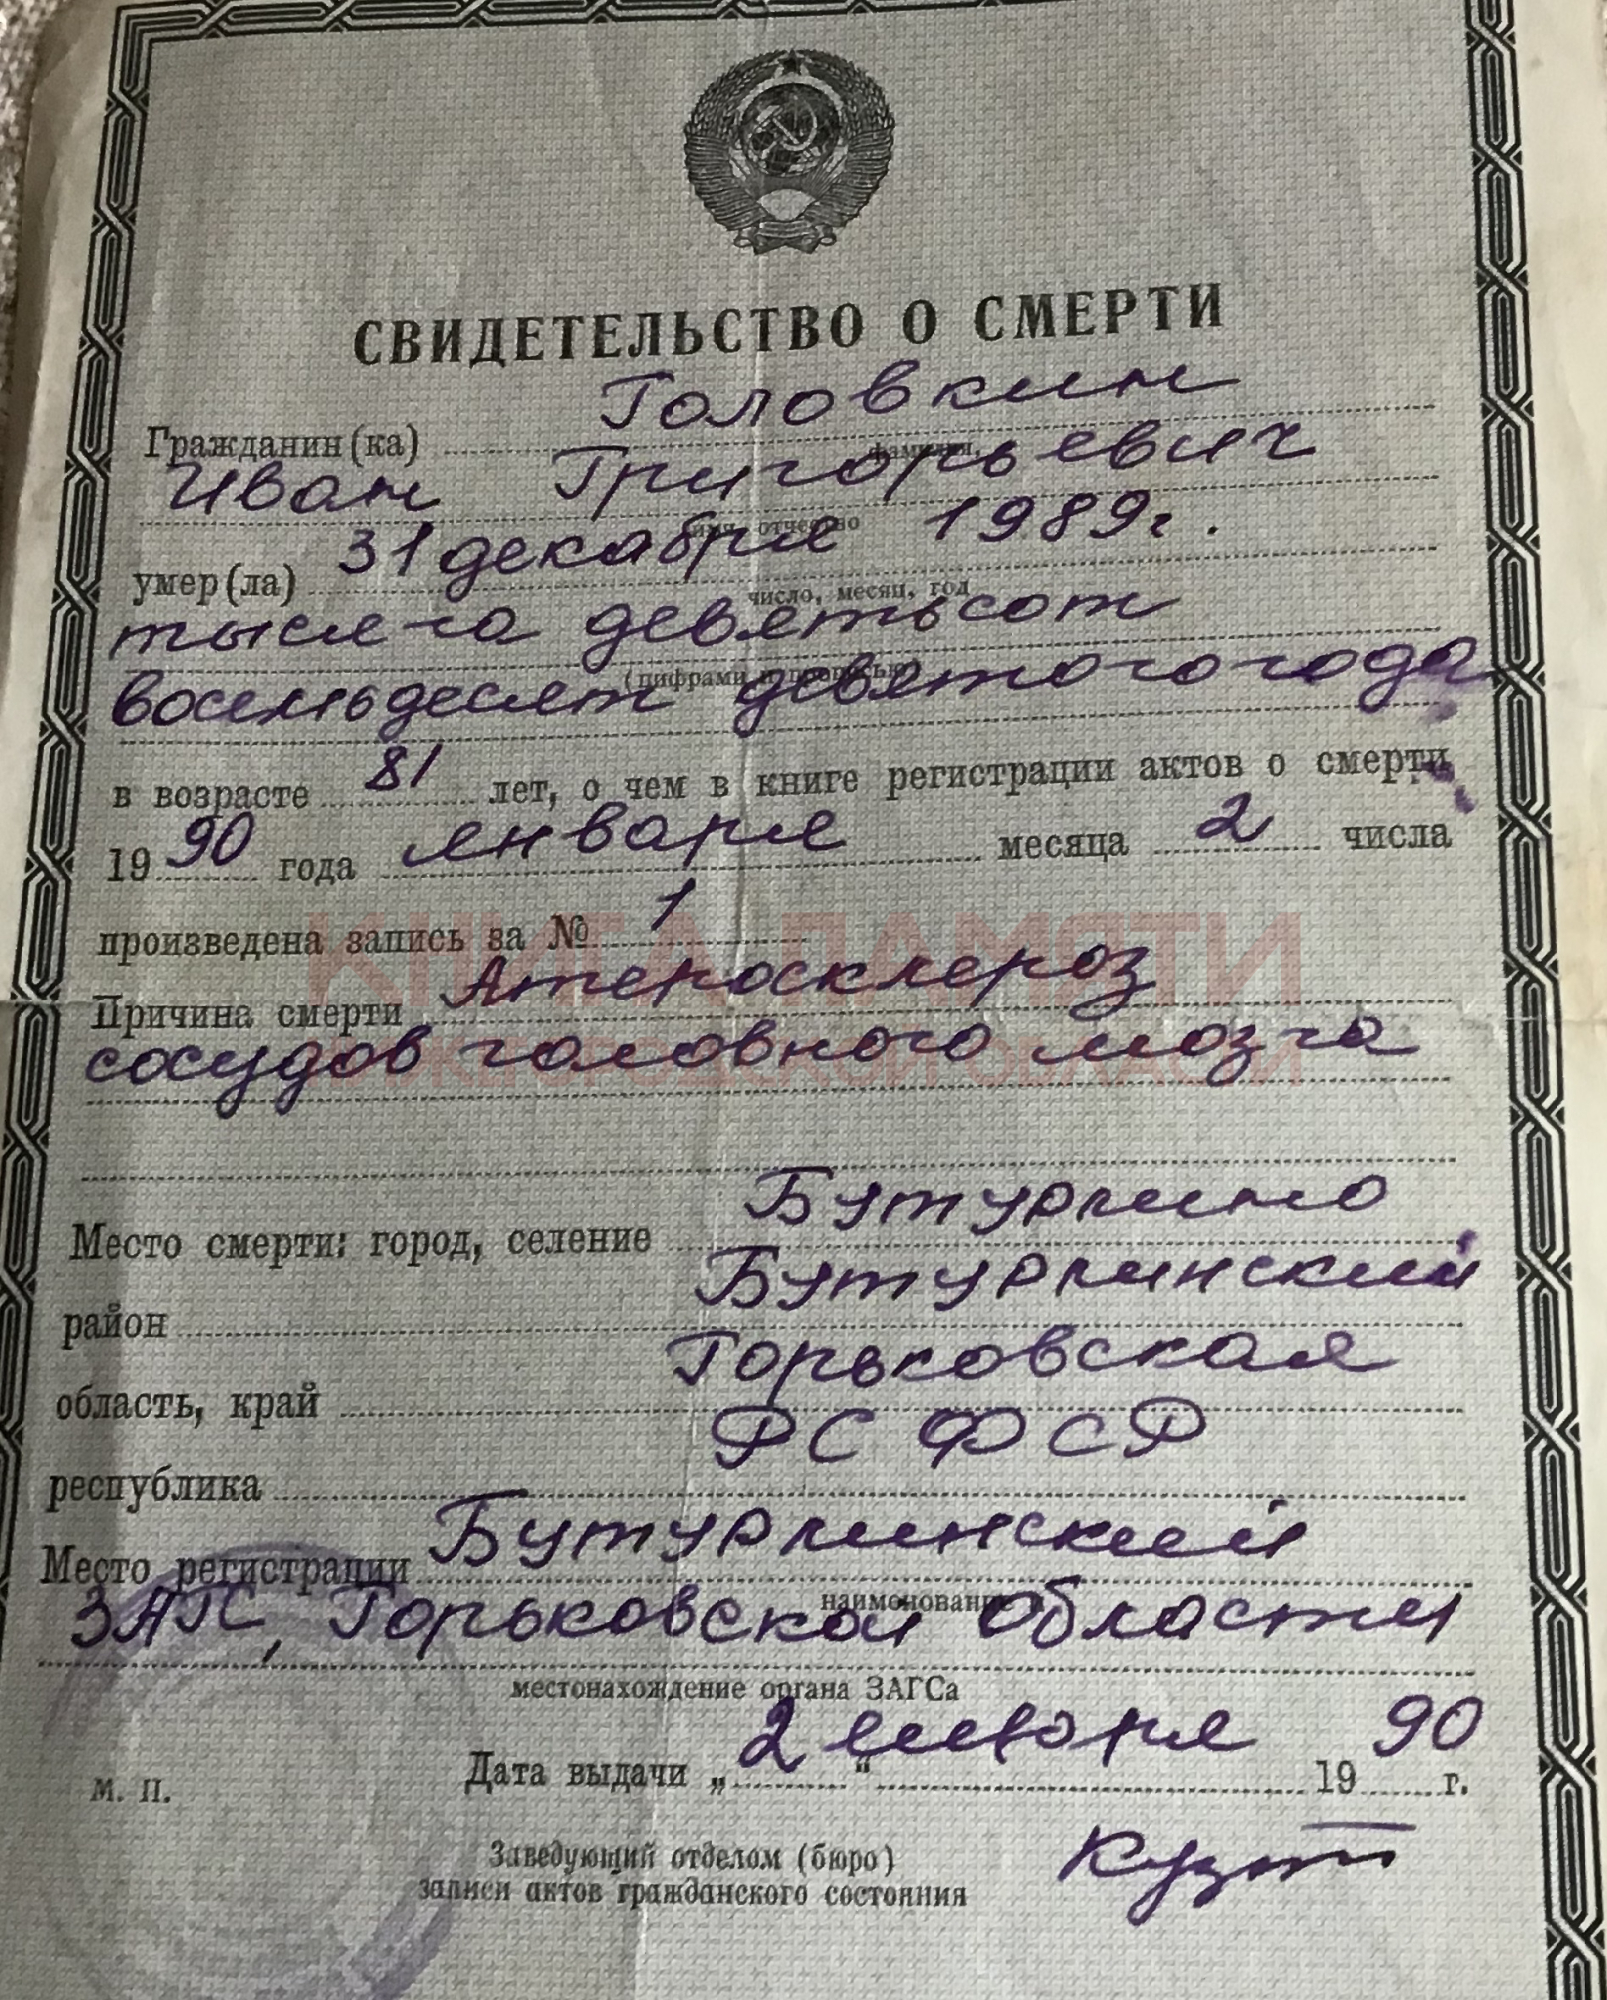 СВИДЕТЕЛЬСТВО О СМЕРТИ
Гражданин (ка) Головкин
фамилия,
Иван Григорьевич
имя, отчество
умер (ла) 31 декабря 1989 г.
число, месяц, год
тысяча девятьсот
(цифрами и прописью)
восемьдесят девятого года
в возрасте 81 лет, о чем в книге регистрации актов о смерти
19 90 года января месяца 2 числа
произведена запись за № 1
КНИГА ПАМЯТИ
Причина смерти Атеросклероз
сосудов головного мозга
НИЖЕГОРОДСКОЙ ОБЛАСТИ
Место смерти: город, селение Бутурлино
район Бутурлинский
область, край Горьковская
республика РСФСР
Место регистрации Бутурлинский
наименование
ЗАГС, Горьковской области
местонахождение органа ЗАГСа
Дата выдачи „ 2 “ января 19 90 г.
М. П.
Заведующий отделом (бюро)
записи актов гражданского состояния